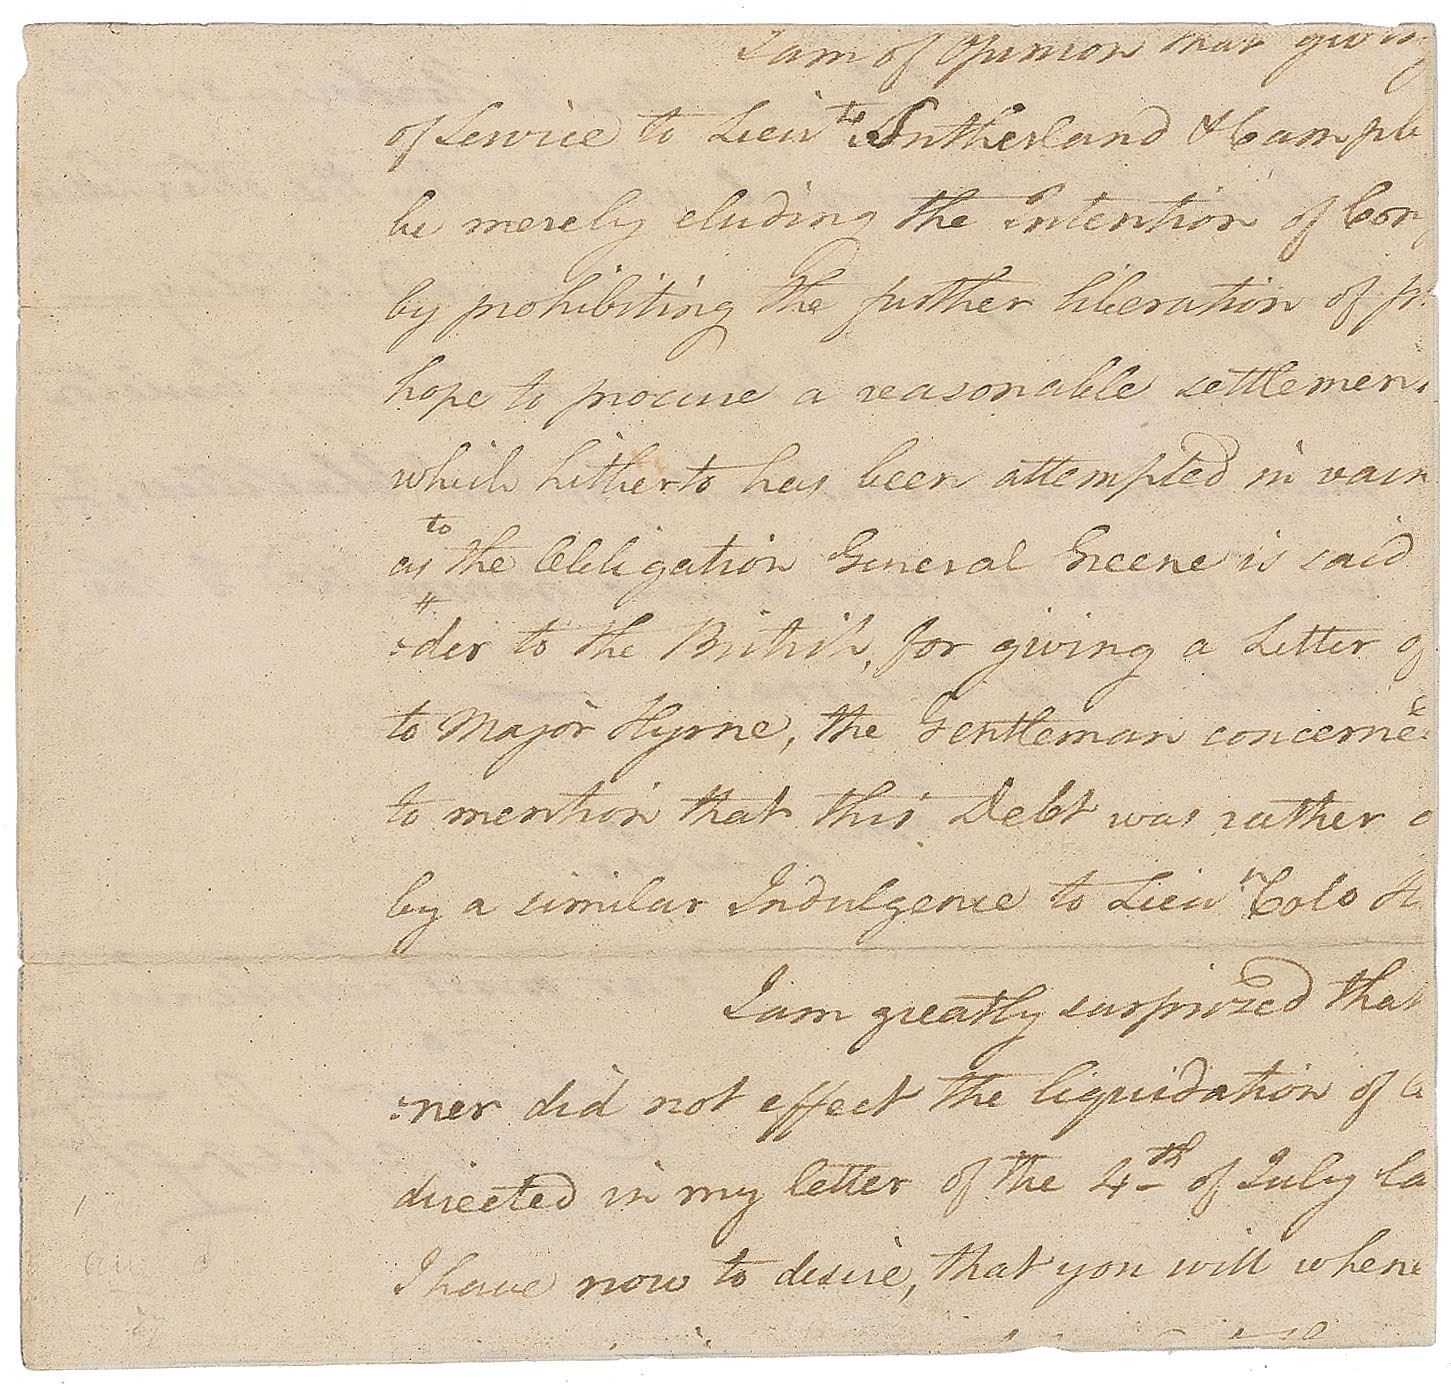 I am of Opinion that givin
of Service to Lieu.ts Sutherland & Campb
be merely eluding the Intention of Con
by prohibiting the further liberation of pr
hope to procure a reasonable settlemen
which hitherto has been attempted in vain
to
as the Obligation General Greene is said
der to the British, for giving a Letter of
to Major Hyrne, the Gentleman concerned
to mention that this Debt was rather
by a similar Indulgence to Lieu.t Colo
I am greatly surprized that
:ner did not effect the liquidation of
directed in my letter of the 4th of July la
I have now to desire, that you will when